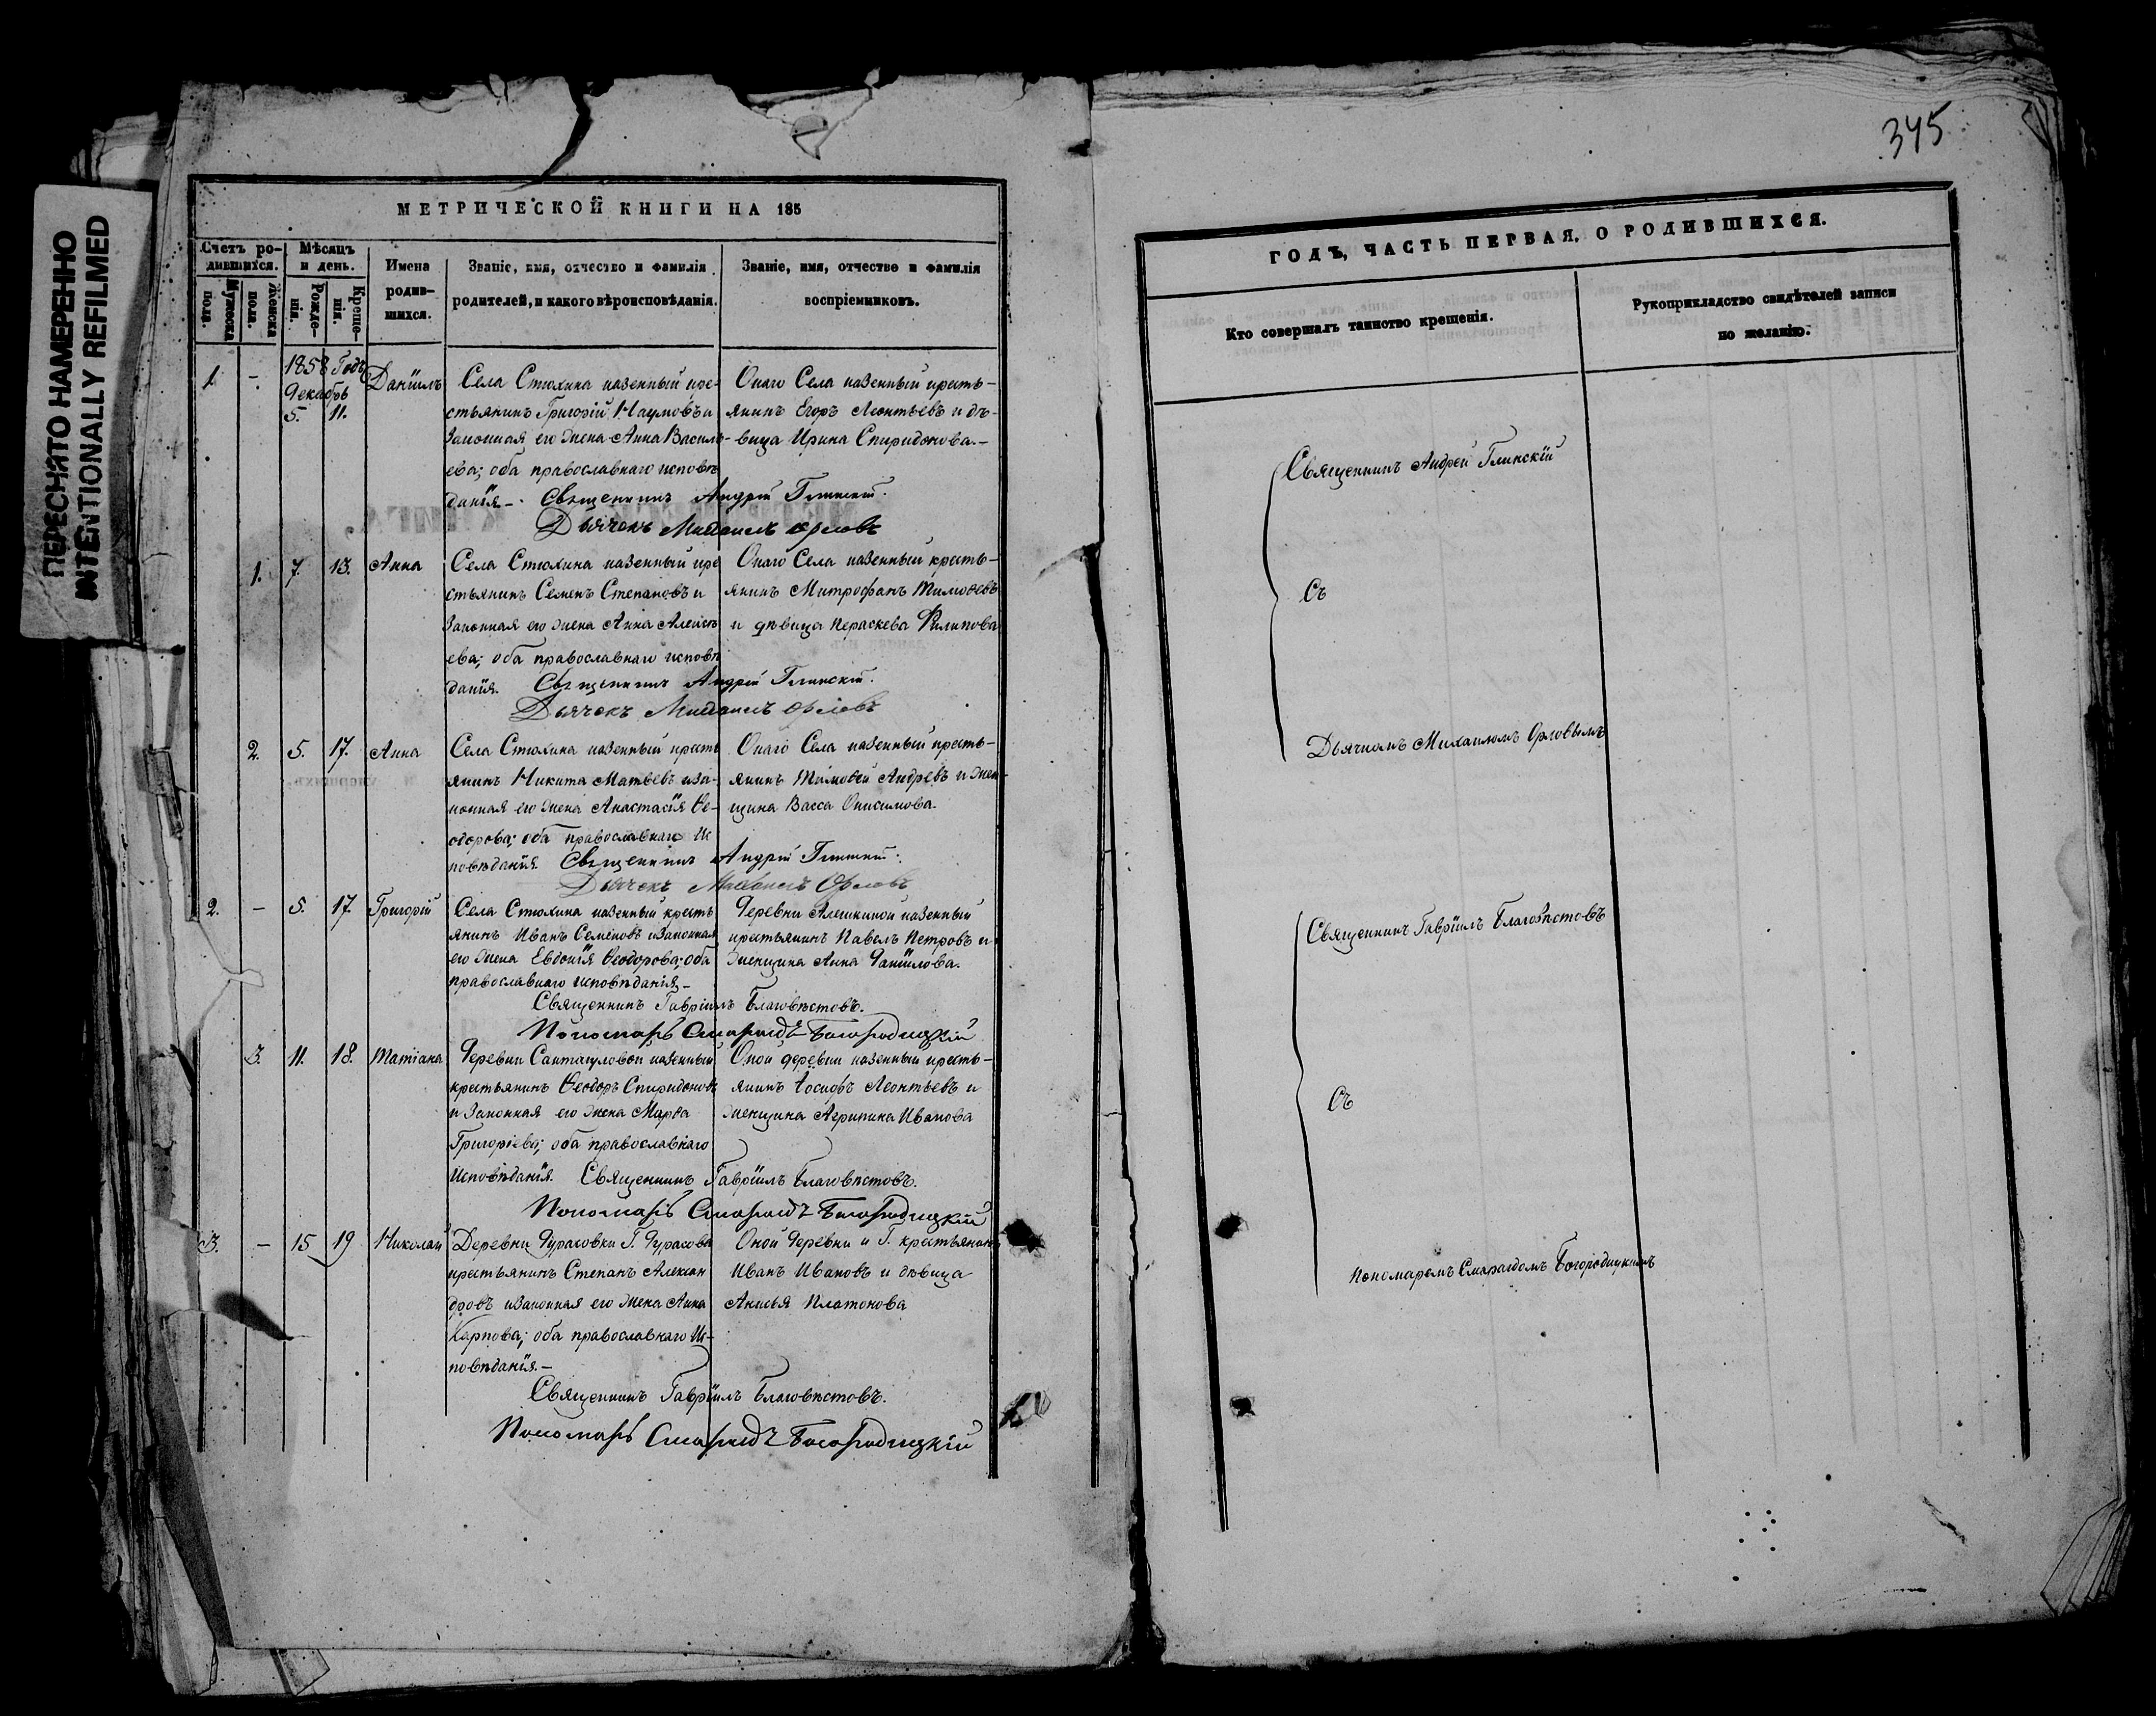 ПЕРЕСНЯТО НАМЕРЕННО
INTENTIONALLY REFILMED
МЕТРИЧЕСКОЙ КНИГИ НА 185
Счетъ ро-
дившихся.
Мужеска
пола.
Женска
пола.
Мѣсяцъ
и день.
Рожде-
нія.
Креще-
нія.
Имена
родив-
шихся.
Званіе, имя, отчество и фамилія
родителей, и какого вѣроисповѣданія.
Званіе, имя, отчество и фамилія
воспріемниковъ.
1858 Годъ
Декабрь
1. - 5. 11. Даніилъ
Села Стюхина казенный кре-
стьянинъ Григорій Наумовъ и
Законная его жена Анна Василь-
ева; оба православнаго исповѣ
данія.- Священникъ Андрей Глинскій.
Дьячекъ Михаилъ Орловъ
Онаго Села казенный кресть-
янинъ Егоръ Леонтьевъ и дѣ-
вица Ирина Спиридонова.-
1. 7. 13. Анна
Села Стюхина казенный кре
стьянинъ Семенъ Степановъ и
Законная его жена Анна Алексѣ
ева; оба православнаго исповѣ
данія. Священникъ Андрей Глинскій.
Дьячекъ Михаилъ Орловъ
Онаго Села казенный кресть-
янинъ Митрофанъ Тимоѳеевъ
и дѣвица Пераскева Филипова
2. 5. 17. Анна
Села Стюхина казенный кресть
янинъ Никита Матвѣевъ и за-
конная его жена Анастасія Ѳе-
одорова; оба православнаго Ис
повѣданія. Священникъ Андрей Глинскій.
Дьячекъ Михаилъ Орловъ
Онаго Села казенный кресть-
янинъ Тимоѳей Андреевъ и жен-
щина Васса Онисимова.
2. - 5. 17. Григорій
Села Стюхина казенный кресть
янинъ Иванъ Семеновъ и Законная
его жена Евдокія Ѳеодорова; оба
православнаго исповѣданія.-
Священникъ Гавріилъ Благовѣстовъ.
Пономарь Смарагдъ Богородицкій
Деревни Алешкиной казенный
крестьянинъ Павелъ Петровъ и
женщина Анна Даніилова.
3. 11. 18. Татіана
Деревни Сантагуловой казенный
крестьянинъ Ѳеодоръ Спиридоновъ
и Законная его жена Марѳа
Григоріева; оба православнаго
Исповѣданія. Священникъ Гавріилъ Благовѣстовъ.
Пономарь Смарагдъ Богородицкій
Оной деревни казенный кресть-
янинъ Іосифъ Леонтьевъ и
женщина Агрипина Иванова
3. - 15 19 Николай
Деревни Дурасовки Г. Дурасова
крестьянинъ Степанъ Алексан
дровъ и Законная его жена Анна
Карпова; оба православнаго Ис-
повѣданія.-
Священникъ Гавріилъ Благовѣстовъ.
Пономарь Смарагдъ Богородицкій
Оной Деревни и Г. крестьянинъ
Иванъ Ивановъ и дѣвица
Анисья Платонова
345
ГОДЪ, ЧАСТЬ ПЕРВАЯ, О РОДИВШИХСЯ.
Кто совершалъ таинство крещенія.
Рукоприкладство свидѣтелей записи
по желанію.
Священникъ Андрей Глинскій
Съ
Дьячкомъ Михаиломъ Орловымъ
Священникъ Гавріилъ Благовѣстовъ
Съ
Пономаремъ Смарагдомъ Богородицкимъ